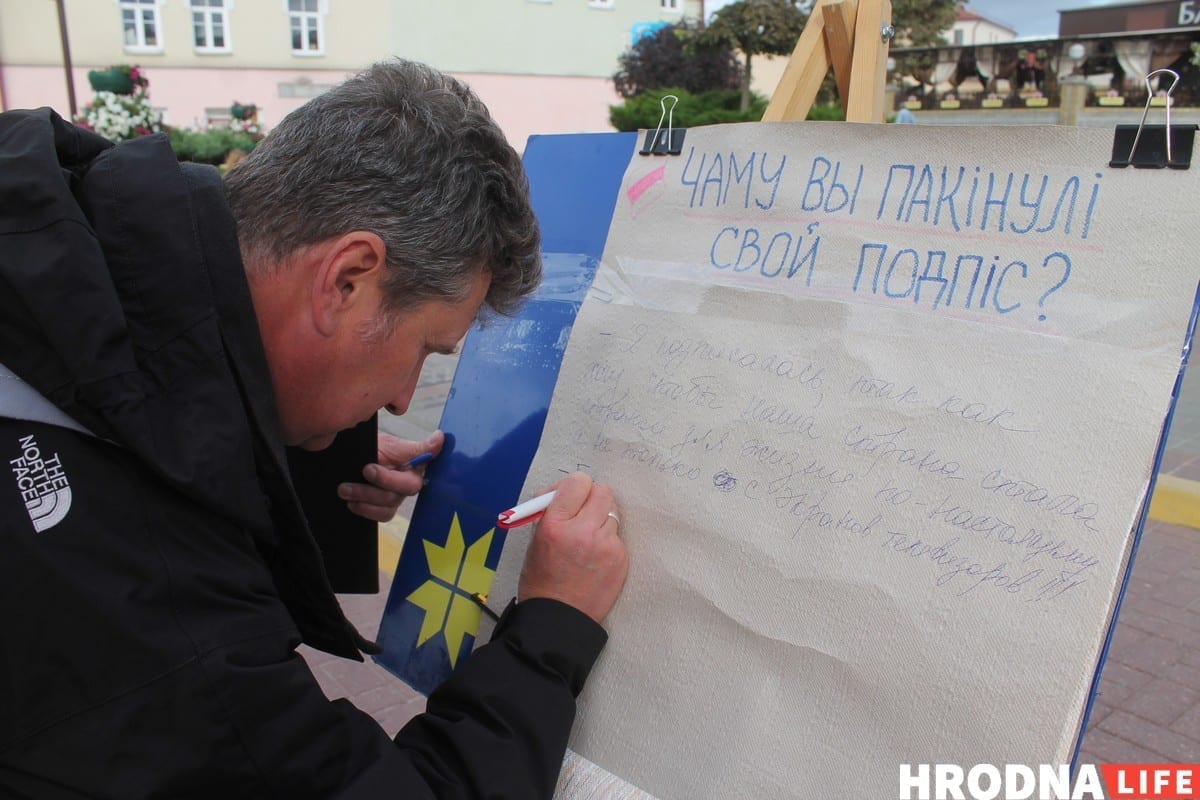 ЧАМУ ВЫ ПАКІНУЛІ
СВОЙ ПОДПІС?
- Я подписалась, так как
хочу чтобы наша страна стала
страной для жизни по-настоящему
а не только с экранов телевизоров!!!
THE
NORTH
FACE
БА
HRODNA LIFE